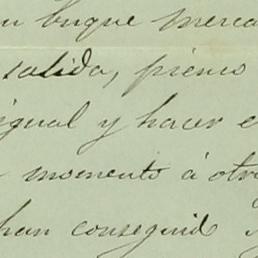 un buque merca
salida, pienso
igual y hacer e
momento á otr
han conseguid